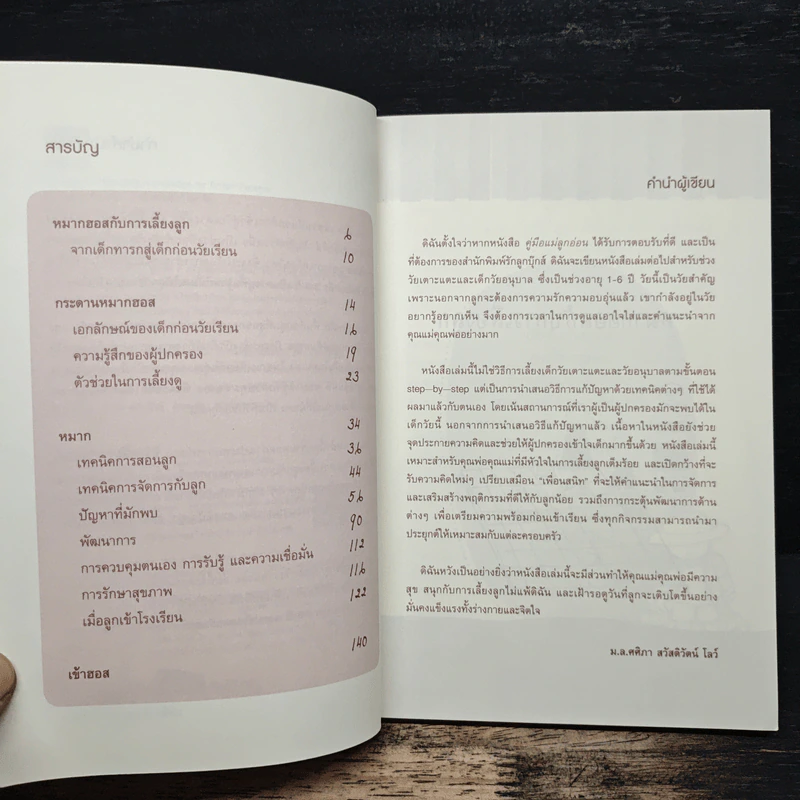 สารบัญ
หมากฮอสกับการเลี้ยงลูก 6
จากเด็กทารกสู่เด็กก่อนวัยเรียน 10
กระดานหมากฮอส 14
เอกลักษณ์ของเด็กก่อนวัยเรียน 16
ความรู้สึกของผู้ปกครอง 19
ตัวช่วยในการเลี้ยงดู 23
หมาก 34
เทคนิคการสอนลูก 36
เทคนิคการจัดการกับลูก 44
ปัญหาที่มักพบ 56
พัฒนาการ 90
การควบคุมตนเอง การรับรู้ และความเชื่อมั่น 112
การรักษาสุขภาพ 116
เมื่อลูกเข้าโรงเรียน 122
เข้าฮอส 140
คำนำผู้เขียน
ดิฉันตั้งใจว่าหากหนังสือ คู่มือแม่ลูกอ่อน ได้รับการตอบรับที่ดี และเป็น
ที่ต้องการของสำนักพิมพ์รักลูกบุ๊กส์ ดิฉันจะเขียนหนังสือเล่มต่อไปสำหรับช่วง
วัยเตาะแตะและเด็กวัยอนุบาล ซึ่งเป็นช่วงอายุ 1-6 ปี วัยนี้เป็นวัยสำคัญ
เพราะนอกจากลูกจะต้องการความรักความมอบอุ่นแล้ว เขากำลังอยู่ในวัย
อยากรู้อยากเห็น จึงต้องการเวลาในการดูแลเอาใจใส่และคำแนะนำจาก
คุณแม่คุณพ่ออย่างมาก
หนังสือเล่มนี้ไม่ใช่วิธีการเลี้ยงเด็กวัยเตาะแตะและวัยอนุบาลตามขั้นตอน
step-by-step แต่เป็นการนำเสนอวิธีการแก้ปัญหาด้วยเทคนิคต่างๆ ที่ใช้ได้
ผลมาแล้วกับตนเอง โดยเน้นสถานการณ์ที่เราผู้เป็นผู้ปกครองมักจะพบได้ใน
เด็กวัยนี้ นอกจากการนำเสนอวิธีแก้ปัญหาแล้ว เนื้อหาในหนังสือยังช่วย
จุดประกายความคิดและช่วยให้ผู้ปกครองเข้าใจเด็กมากขึ้นด้วย หนังสือเล่มนี้
เหมาะสำหรับคุณพ่อคุณแม่ที่มีหัวใจในการเลี้ยงลูกเต็มร้อย และเปิดกว้างที่จะ
รับความคิดใหม่ๆ เปรียบเสมือน "เพื่อนสนิท" ที่จะให้คำแนะนำในการจัดการ
และเสริมสร้างพฤติกรรมที่ดีให้กับลูกน้อย รวมถึงการกระตุ้นพัฒนาการด้าน
ต่างๆ เพื่อเตรียมความพร้อมก่อนเข้าเรียน ซึ่งทุกกิจกรรมสามารถนำมา
ประยุกต์ให้เหมาะสมกับแต่ละครอบครัว
ดิฉันหวังเป็นอย่างยิ่งว่าหนังสือเล่มนี้จะมีส่วนทำให้คุณแม่คุณพ่อมีความ
สุข สนุกกับการเลี้ยงลูกไม่แพ้ดิฉัน และเฝ้ารอดูวันที่ลูกจะเติบโตขึ้นอย่าง
มั่นคงแข็งแรงทั้งร่างกายและจิตใจ
ม.ล.ศศิภา สวัสดิวัตน์ โลว์